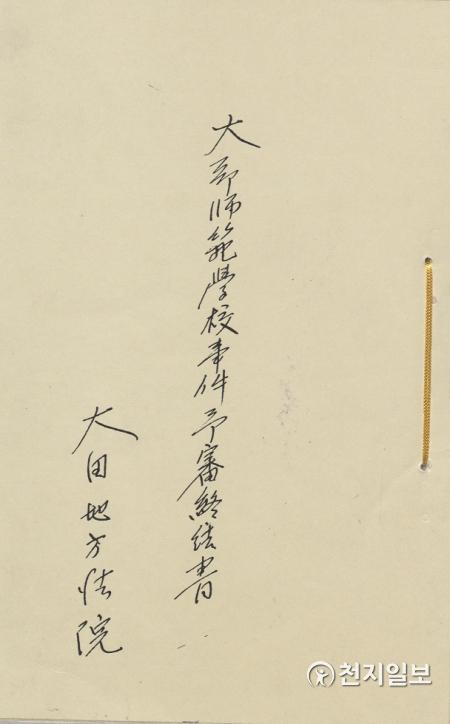 大邱师範學校事件予審終結書
大田地方法院
천지일보